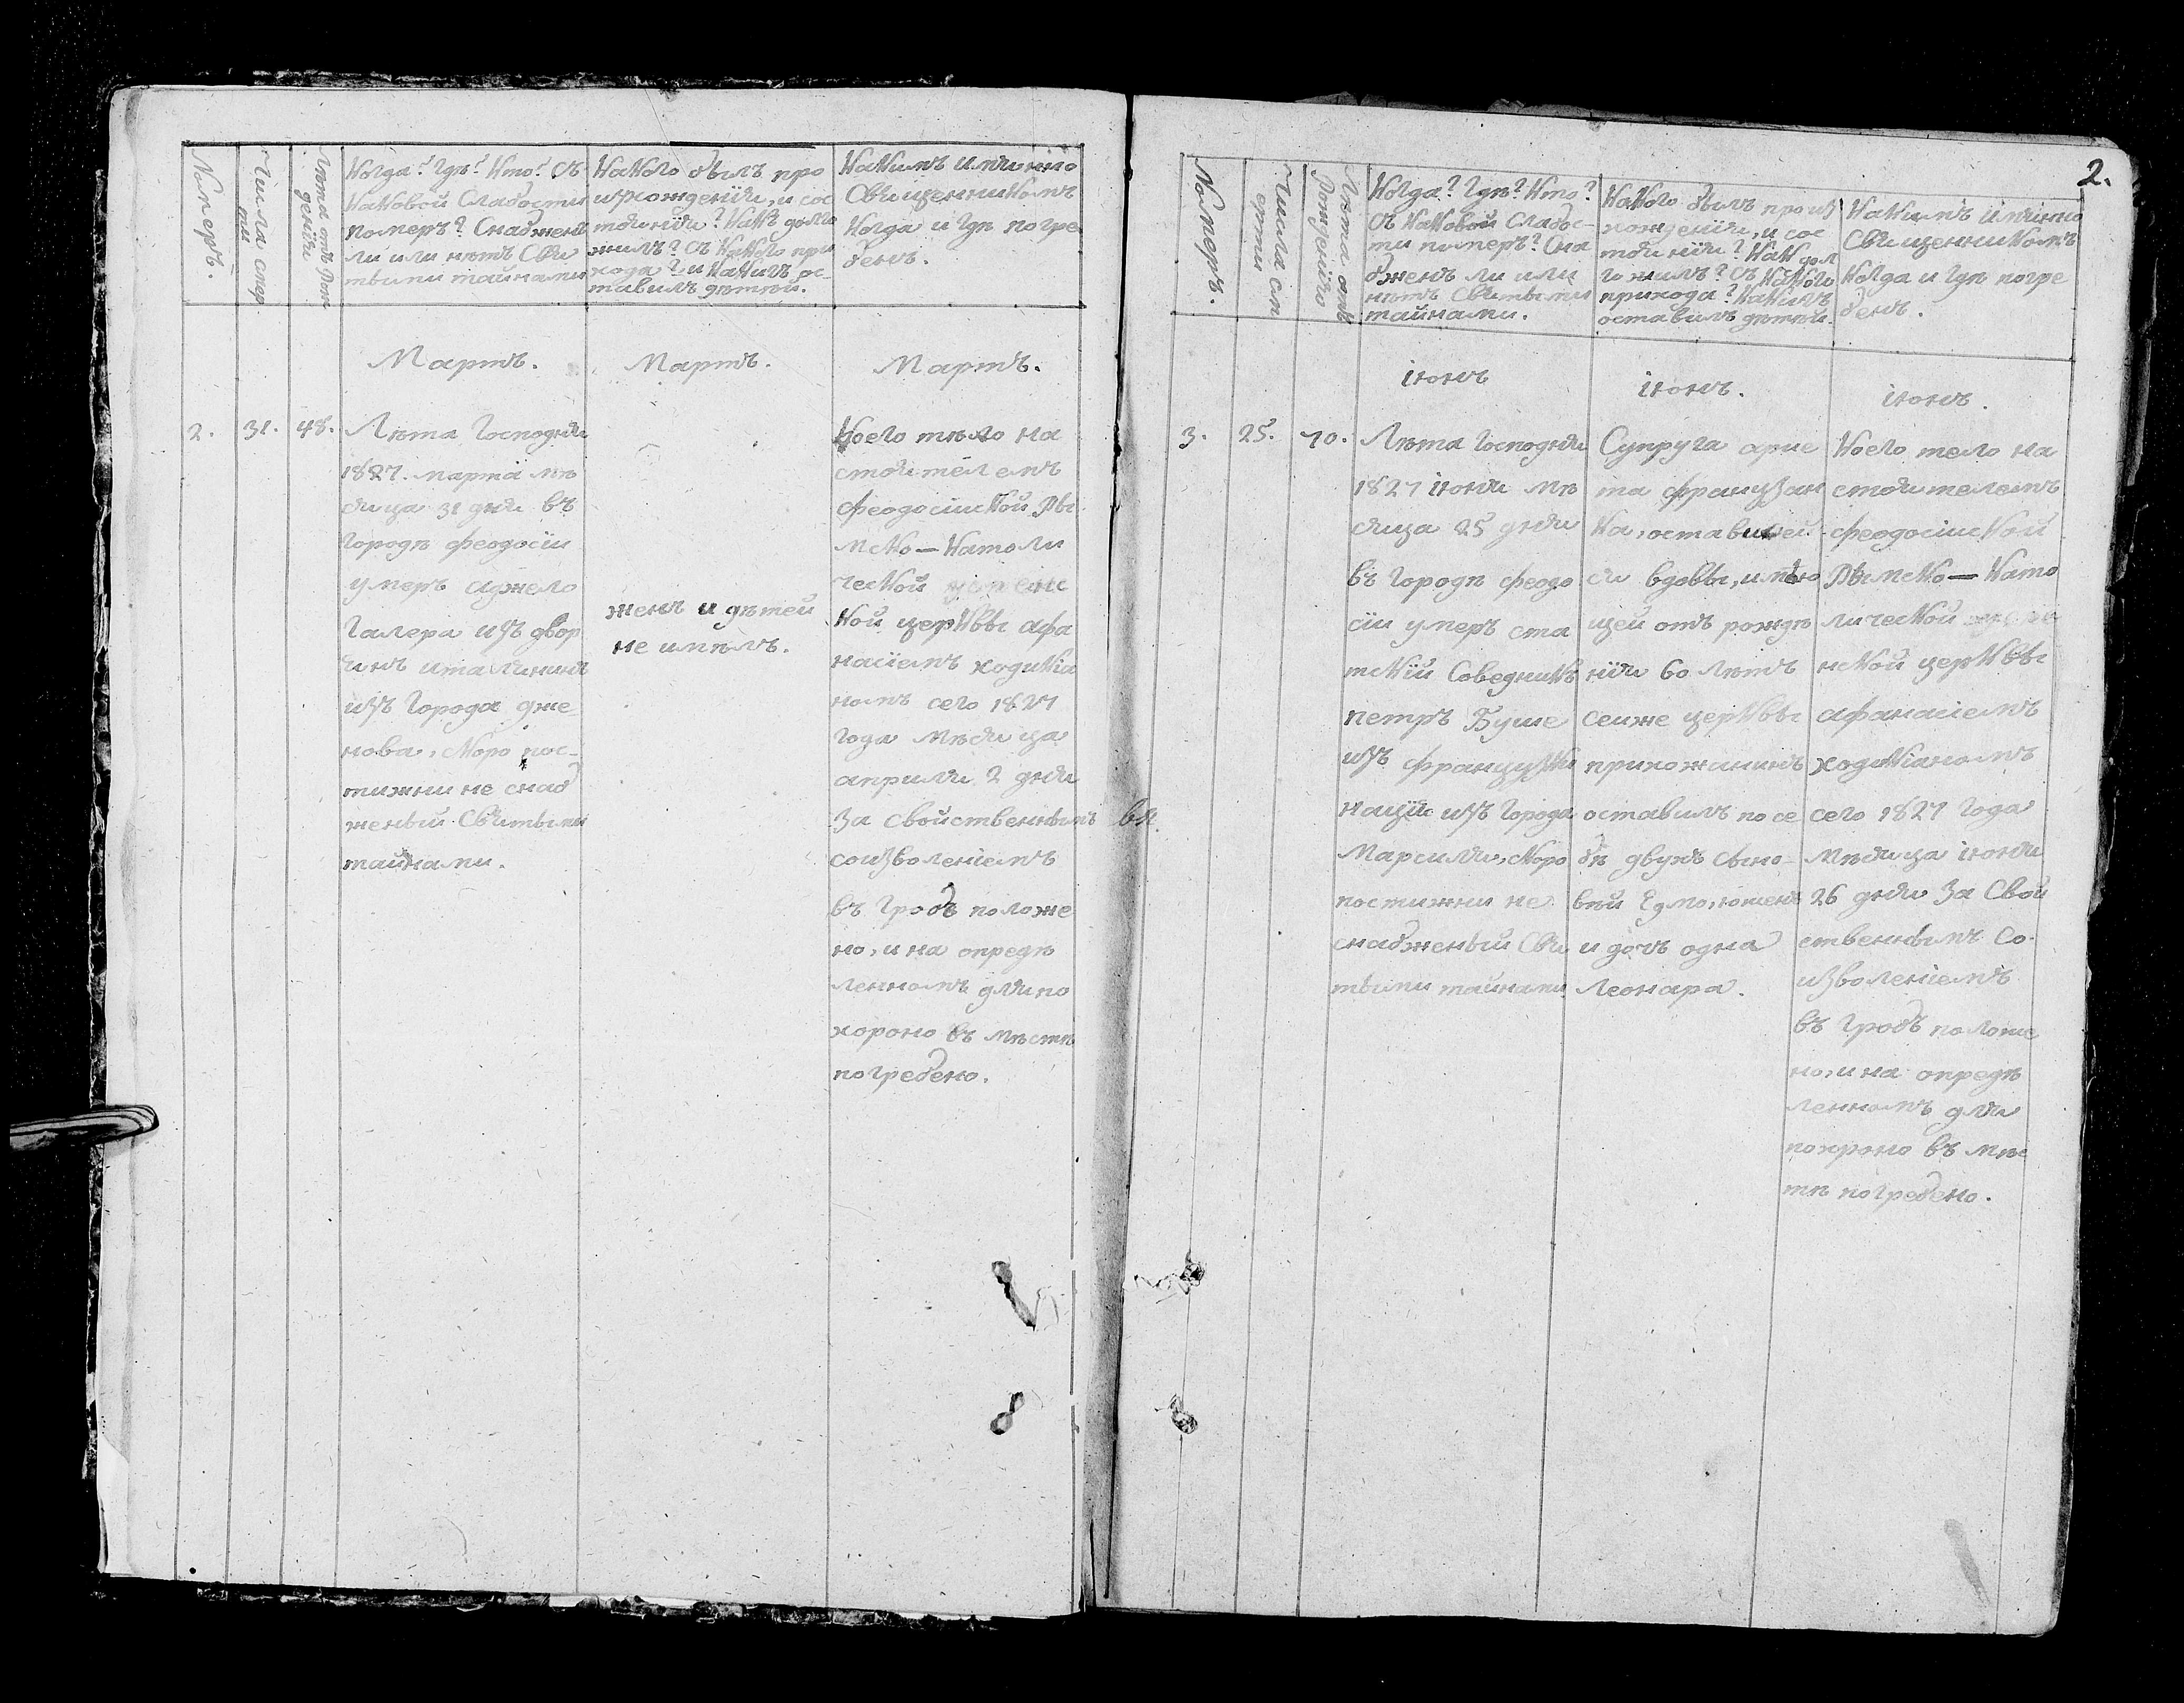 Номеръ.
Числа смер
ти
Лѣта отъ Рож
денія
Когда? Гдѣ? Кто? Съ
Каковой Слабости
померъ? Снабженъ
ли или нѣтъ Свя
тыми тайнами
Какого былъ про
изхожденія, и сос
тоянія? Какъ долго
жилъ? Съ Какого при
хода? и Какихъ ос
тавилъ дѣтей.
Какимъ имянно
Священникомъ
Когда и Гдѣ погре
бенъ.
Мартъ.
Мартъ.
Мартъ.
2.
31.
48.
Лѣта Господня
1827. марта мѣ
сяца 31 дня въ
Городѣ феодосіи
умеръ анжело
Галера изъ двор
янъ италиянинъ
изъ Города дже
нова, скоро пос-
тижни не снаб
женый Святыми
тайнами.
женъ и дѣтей
не имѣлъ.
Коего тѣло на
стоятелемъ
феодосійской Ры
мско-Католи
ческой
кой церквы афа
насіемъ ходикіа
номъ сего 1827
года мѣсяца
априля 2 дня
за свойственнымъ
соизволеніемъ
въ гробъ положе
но, и на опредѣ
ленномъ для по
хороно въ мѣстѣ
погребено.
2.
Номеръ.
Числа см
ерти
Лѣта отъ
Рожденія
Когда? Гдѣ? Кто?
Съ Каковой Слабос-
ти померъ? Сна
бженъ ли или
нѣтъ Святыми
тайнами.
Какого былъ произ
хожденія, и сос
тоянія? Какъ дол
го жилъ? Съ Какого
прихода? Какихъ
оставилъ дѣтей.
Какимъ имянно
Священникомъ
Когда и Гдѣ погре
бенъ.
іюнъ
іюнъ.
іюнъ.
3.
25.
70.
Лѣта Господня
1827 іюня мѣ
сяца 25 дня
въ Городѣ феодо
сіи умеръ ста
тскій Соведникъ
петръ Буше
изъ французкѝ
націи изъ Города
Марсиля, скоро
постижни не
снабженый Свя
тыми тайнами.
Супруга арие
та француzан
ка, оставшей
ся вдовы, имѣю
щей отъ рождѣ
нія 60 лѣтъ
сеиже церквы
прихожанинъ
оставилъ по се
бѣ двухъ сыно-
вѣй Едмо, южень
и дочъ одна
Леонара.
Коего тело на
стоятелемъ
феодосійской
Рымско-Като
лической
нской церквы
афанасіемъ
ходикіаномъ
сего 1827 года
мѣсяца іюня
26 дня за свой
ственнымъ со-
изволеніемъ
въ гробъ положе
но, и на опредѣ
ленномъ для
похроно въ мѣс
тѣ погребено.